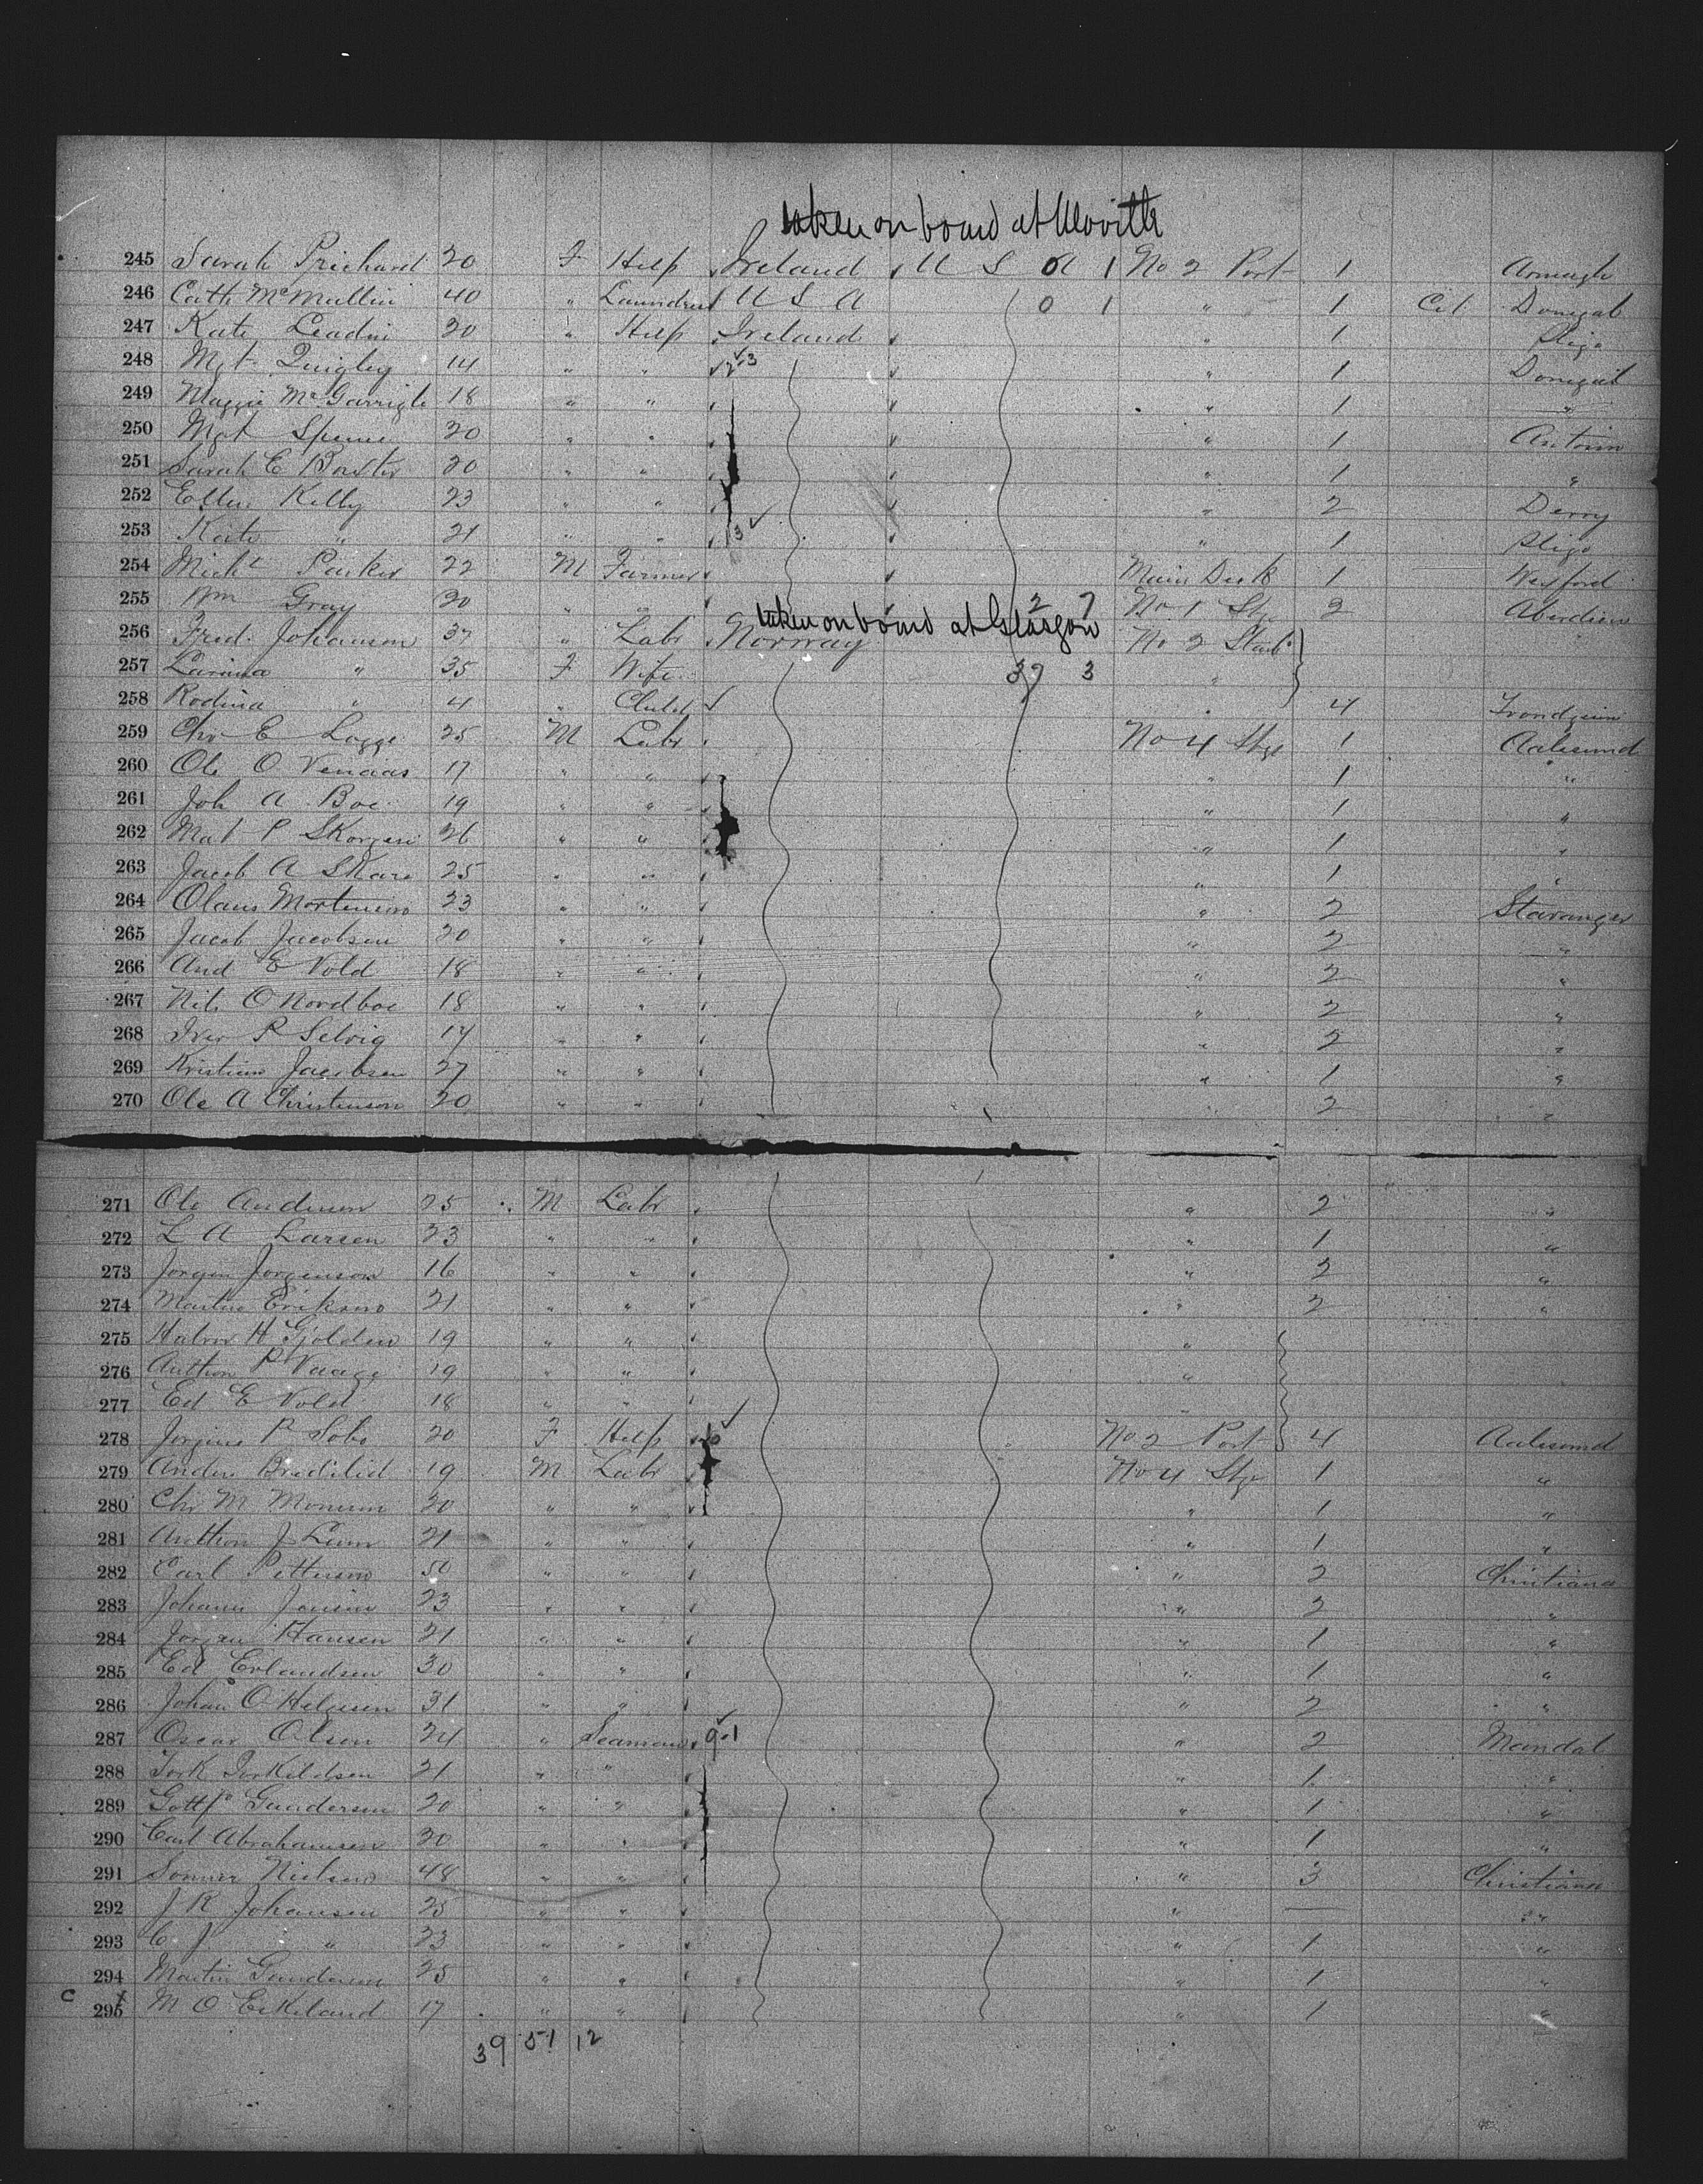 taken on board at Moville
245 Sarah Prichard 20 F Help Ireland U S A 1 No 2 Port 1 Armagh
246 Cath McMullin 40 " Laundress U S A 0 1 " 1 Cit Donegal
247 Kate Leadin 30 " Help Ireland " 1 Sligo
248 Mgt Quigley 14 " " 3 " 1 Donegal
249 Maggie McGarrigle 18 " " " 1 "
250 Mgt 20 " " " 1 Antrim
251 Sarah E 20 " " " 1 "
252 Ellen Kelly 23 " " " 2 Derry
253 Kate " 21 " " 13 " 1 Sligo
254 Michl Parker 22 M Farmer Main Deck 1 Wexford
255 Wm Gray 20 " " 2 7 No 1 Stg 2 Aberdeen
taken on board at Glasgow
256 Fred. Johanson 37 " Labr Norway No 2 Starb
257 " 35 F Wife 37 3 "
258 Rodina " 4 " Child " 4 Trondjeim
259 Chr E Logge 25 M Labr No 4 Stge 1 Aalesund
260 Ole O Venaas 17 " " " 1 "
261 Joh A Boe 19 " " " 1 "
262 Mat P 26 " " " 1 "
263 Jacob A Skare 25 " " " 1 "
264 Olaus Mortenson 23 " " " 2 Stavanger
265 Jacob Jacobsen 20 " " " 2 "
266 And E Vold 18 " " " 2 "
267 Nils O Nordboe 18 " " " 2 "
268 Iver P Selvig 17 " " " 2 "
269 Kristian Jacobsen 27 " " " 1 "
270 Ole A Christenson 20 " " " 2 "
271 Ole Anderson 25 M Labr " 2 "
272 L A Larsen 23 " " " 1 "
273 Jorgen Jorgenson 16 " " " 2 "
274 Martin Erikson 21 " " " 2 "
275 Halvor H Gjolden 19 " " "
276 Anthon P Vaage 19 " " "
277 Ed E Vold 18 " " "
278 Jorgine P 20 F Help No 2 Port 4 Aalesund
279 19 M Labr No 4 Stg 1 "
280 Chr M 20 " " " 1 "
281 Anthon J 21 " " " 1 "
282 Carl Petterson 50 " " " 2 Christiana
283 Johann 23 " " " 2 "
284 Jorgen Hansen 21 " " " 1 "
285 Ed Erlandsen 30 " " " 1 "
286 Johan O Helgesen 31 " " " 2 "
287 Oscar Olsen 24 " Seaman 9.1 " 2 Mandal
288 Tork Torkildsen 21 " " " 1 "
289 Gottf Gundersen 20 " " " 1 "
290 Carl Abrahamsen 30 " " " 1 "
291 Nielsen 48 " " " 3 Christiana
292 J R Johansen 25 " " " — "
293 C J " 23 " " " 1 "
294 Martin Gundersen 25 " " " 1 "
C X 295 M O Eikeland 17 " " " 1 "
39 51 12